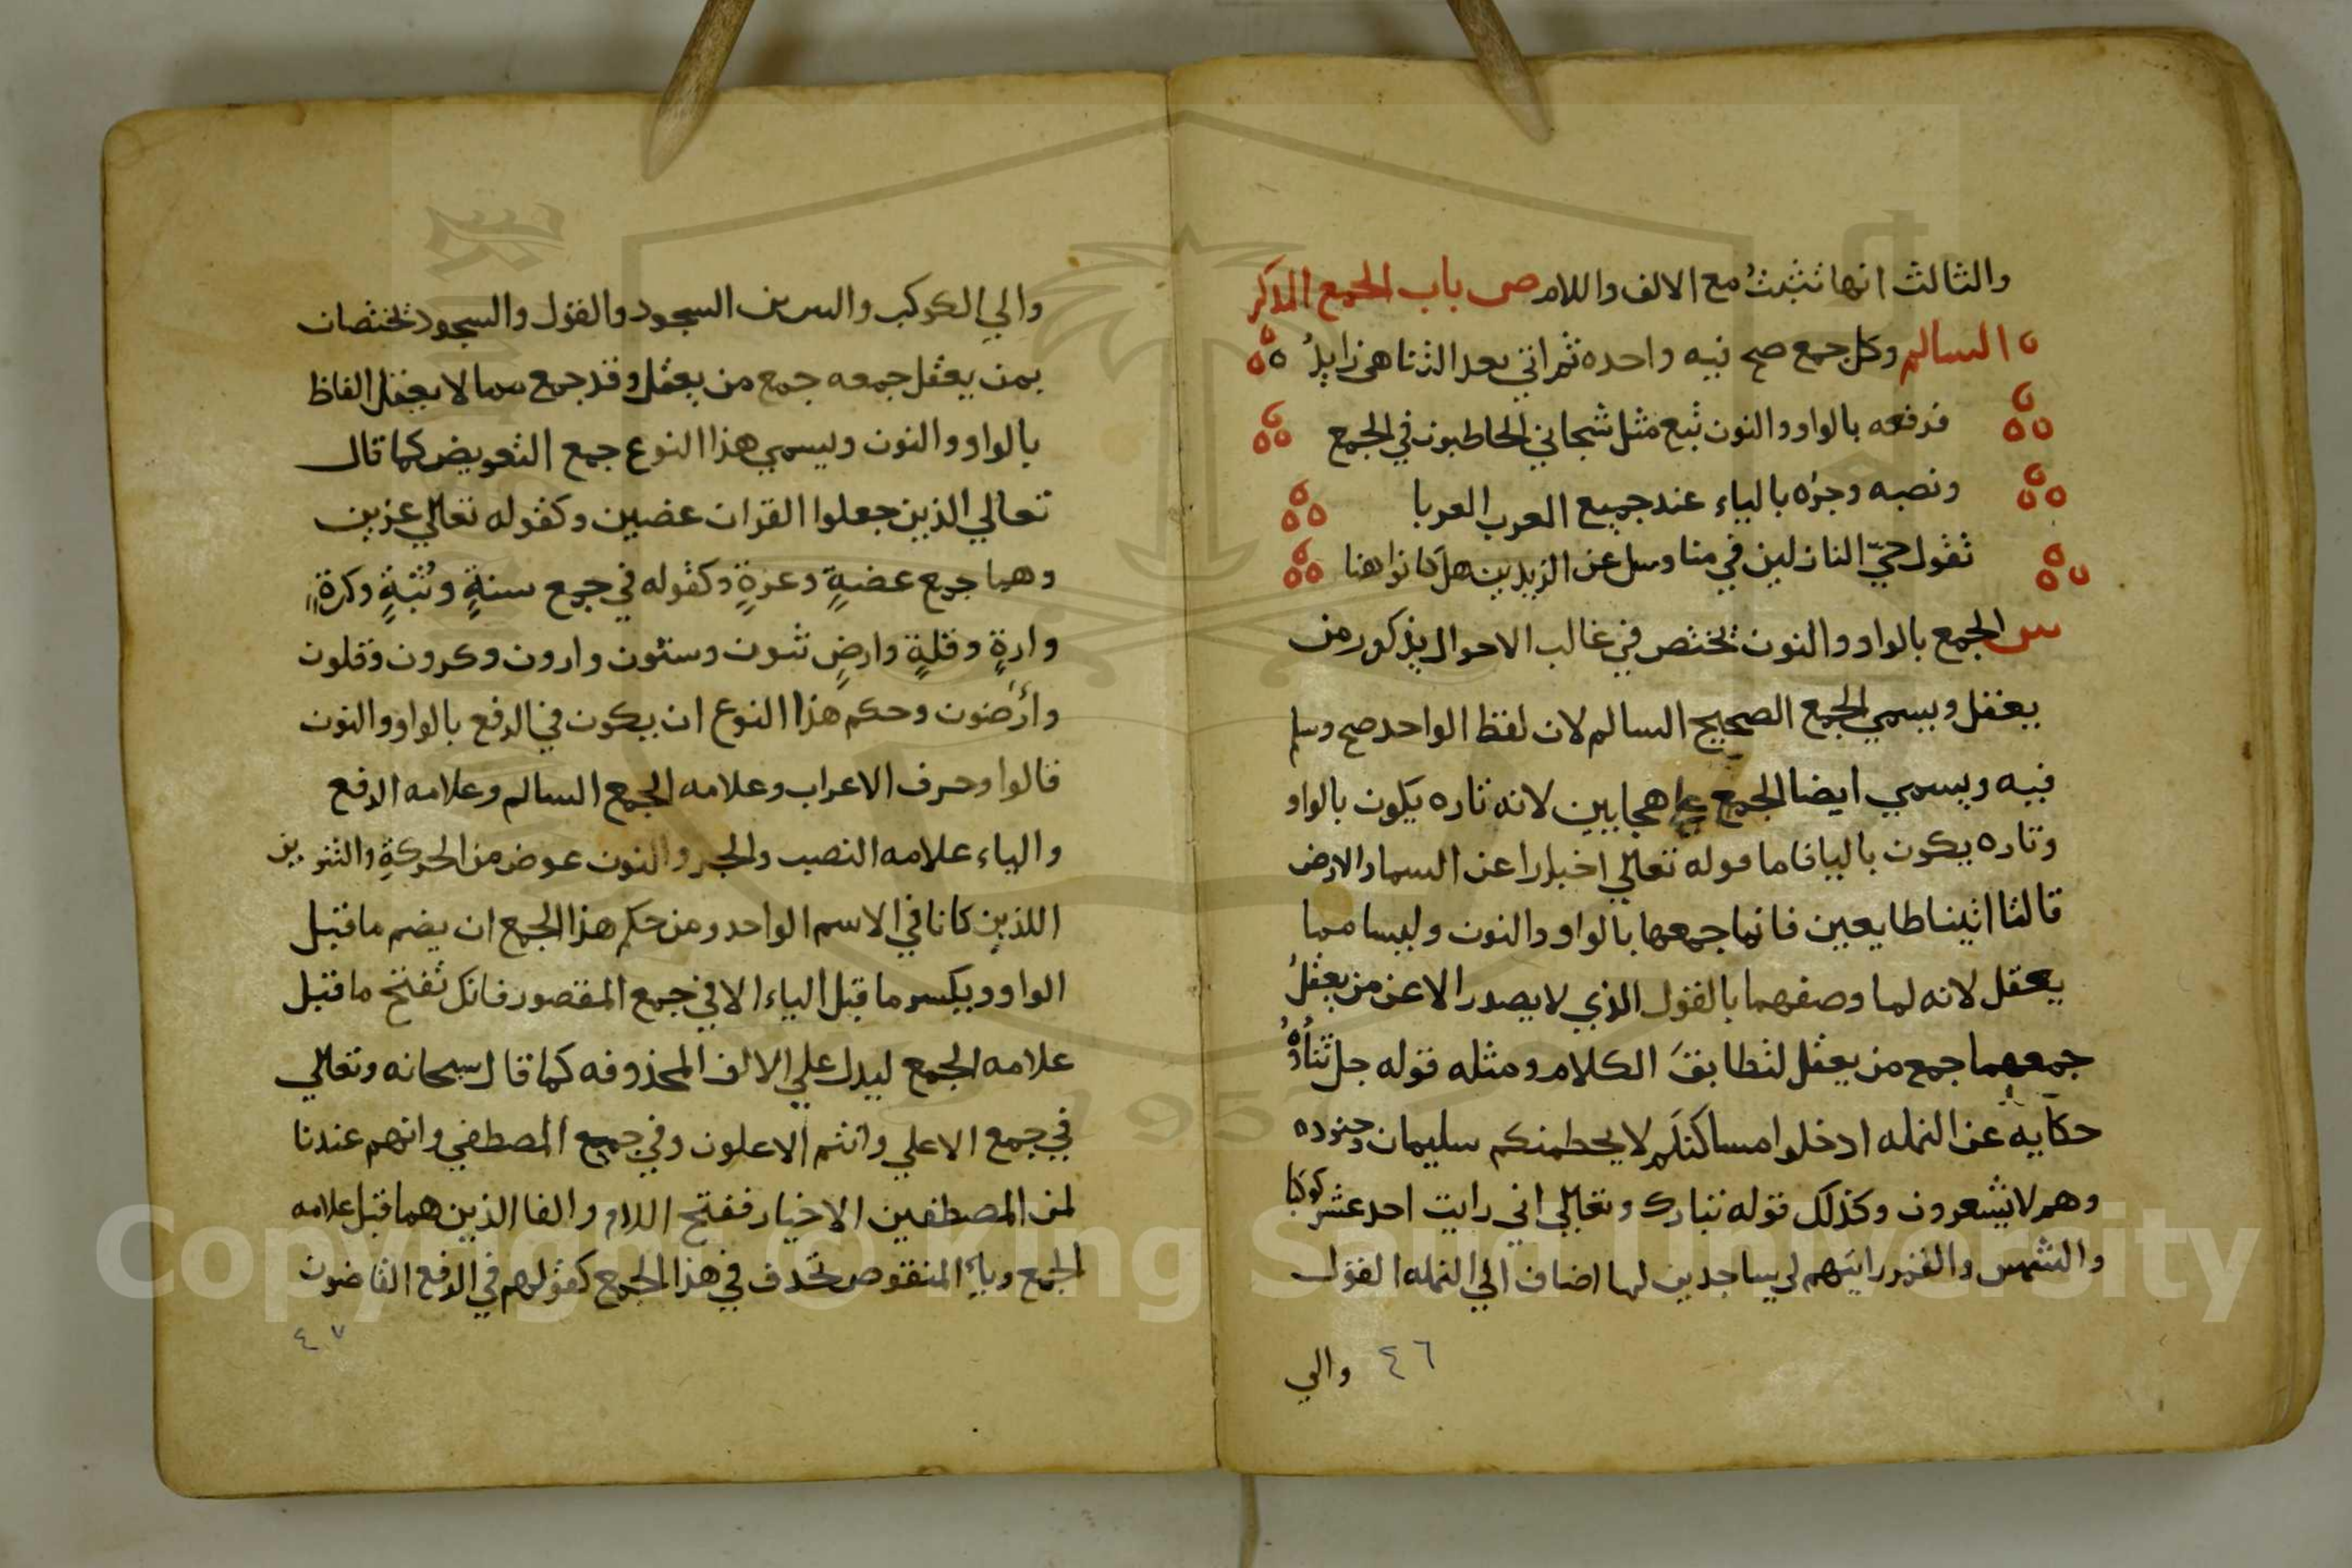 والثالث انها تثبت مع الالف واللام ص باب الجمع المذكر
السالم وكل جمع صح فيه واحده ثم اتي بعد التناهي زايدُ
فرفعه بالواو والنون تبع مثل شجاني الخاطبون في الجمع
ونصبه وجره بالياء عند جميع العرب العربا
تقول حيّ النازلين في منا وسل عن الزيدين هل كانوا هنا
س الجمع بالواو والنون تختص في غالب الاحوال بذكور من
يعقل ويسمي الجمع الصحيح السالم لان لفظ الواحد صح وسلم
فيه ويسمي ايضا الجمع علي هجايين لانه تاره يكون بالواو
وتاره يكون باليا فاما قوله تعالي اخبارا عن السما والارض
قالتا اتينا طايعين فانما جمعها بالواو والنون وليسا مما
يعقل لانه لما وصفهما بالقول الذي لا يصدر الا عن من يعقلُ
جمعهما جمع من يعقل لتطابقَ الكلام ومثله قوله جل ثناؤُهُ
حكايه عن النمله ادخلوا مساكنكم لا يحطمنكم سليمان وجنوده
وهم لا يشعرون وكذلك قوله تبارك وتعالي اني رايت احد عشر كوكبا
والشمس والقمر رايتهم لي ساجدين لما اضاف الي النمله القول
والي
٤٦
والي الكوكب والسرين السجود والقول والسجود تختصان
بمن يعقل جمعه جمع من يعقل وقد جمع مما لا يعقل الفاظ
بالواو والنون ويسمي هذا النوع جمع التعويض كما قال
تعالي الذين جعلوا القران عضين وكقوله تعالي عزين
وهما جمع عضةٍ وعزةٍ وكقوله في جمع سنةٍ وثبةٍ وكرةٍ
وارةٍ وقلةٍ وارضٍ ثبون وسنون وارون وكرون وقلون
وأرَضون وحكم هذا النوع ان يكون في الرفع بالواو والنون
فالواو حرف الاعراب وعلامه الجمع السالم وعلامه الرفع
والياء علامه النصب والجر والنون عوض من الحركةِ والتنوين
اللذين كانا في الاسم الواحد ومن حكم هذا الجمع ان يضم ما قبل
الواو ويكسر ما قبل الياء الا في جمع المقصور فانك تفتح ما قبل
علامه الجمع ليدل علي الالف المحذوفه كما قال سبحانه وتعالي
في جمع الاعلي وانتم الاعلون وفي جميع المصطفي وانهم عندنا
لمن المصطفين الاخيار ففتح اللام والفا الذين هما قبل علامه
الجمع وياء المنقوص تحذف في هذا الجمع كقولهم في الرفع القاضون
٤٧
Copyright © King Saud University
1957